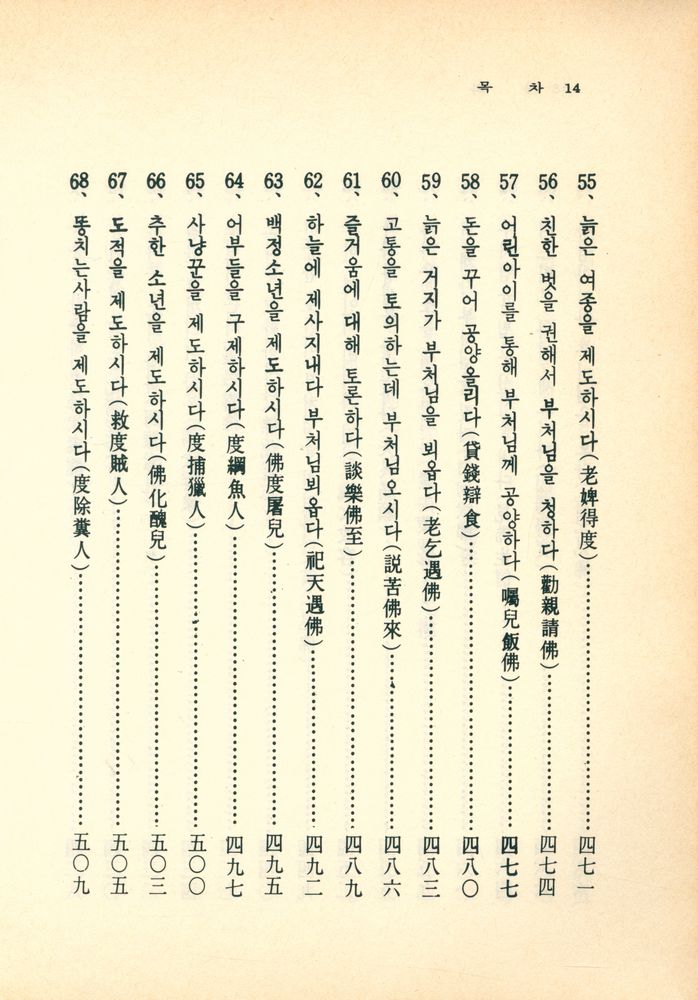 목 차 14
55、 늙은 여종을 제도하시다(老婢得度)……四七一
56、 친한 벗을 권해서 부처님을 청하다(勸親請佛)……四七四
57、 어린아이를 통해 부처님께 공양하다(囑兒飯佛)……四七七
58、 돈을 꾸어 공양올리다(貸錢辯食)……四八〇
59、 늙은 거지가 부처님을 뵈옵다(老乞遇佛)……四八三
60、 고통을 토의하는데 부처님오시다(説苦佛來)……四八六
61、 즐거움에 대해 토론하다(談樂佛至)……四八九
62、 하늘에 제사지내다 부처님뵈옵다(祀天遇佛)……四九二
63、 백정소년을 제도하시다(佛度屠兒)……四九五
64、 어부들을 구제하시다(度綱魚人)……四九七
65、 사냥꾼을 제도하시다(度捕獵人)……五〇〇
66、 추한 소년을 제도하시다(佛化醜兒)……五〇三
67、 도적을 제도하시다(救度賊人)……五〇五
68、 똥치는사람을 제도하시다(度除糞人)……五〇九